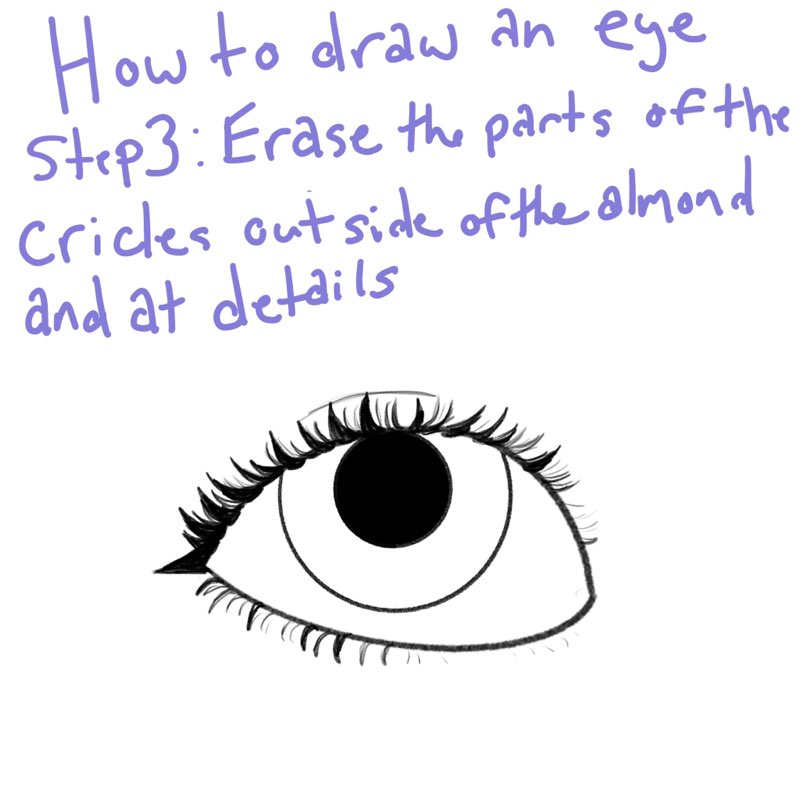 How to draw an eye
Step3: Erase the parts of the
cricles outside of the almond
and at details